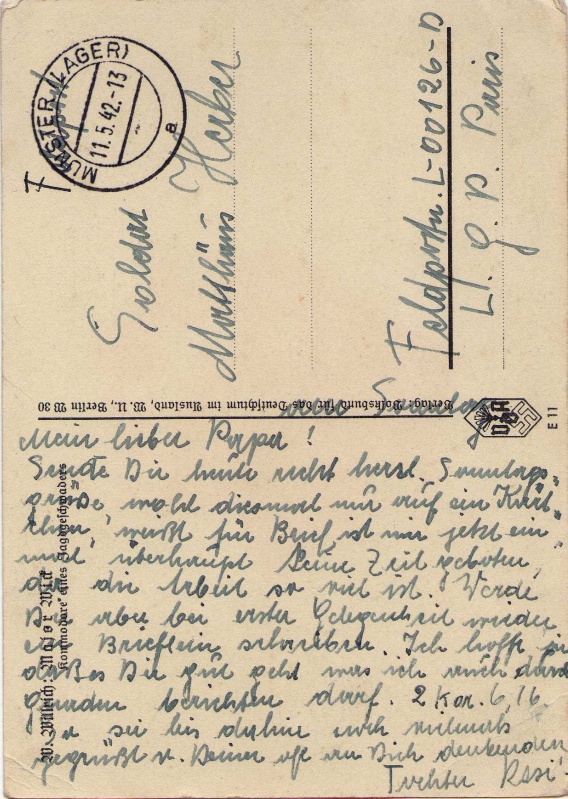 MUNSTER (LAGER)
11.5.42.-13
a
F
Soldat
Matthäus Herber
Feldpostn. L-00126-D
L. G. P. Paris
Verlag: Volksbund für das Deutschtum im Ausland, W. U., Berlin W 30
VDA
E 11
W. Willrich: Major Wick
Kommodore eines Jagdgeschwaders
Sonntag
Mein lieber Papa!
Sende Dir heute recht herzl. Sonntags-
grüße, wohl diesmal nur auf ein Kärt-
chen, weißt für Brief ist mir jetzt ein-
mal überhaupt keine Zeit geboten,
da die Arbeit so viel ist. Werde
Dir aber bei erster Gelegenheit wieder
ein Brieflein schreiben. Ich hoffe
daß es Dir gut geht was ich auch
berichten darf. 2 Kor. 6, 16.
sei bis dahin noch vielmals
gegrüßt v. Deiner oft an Dich denkenden
Tochter Resi